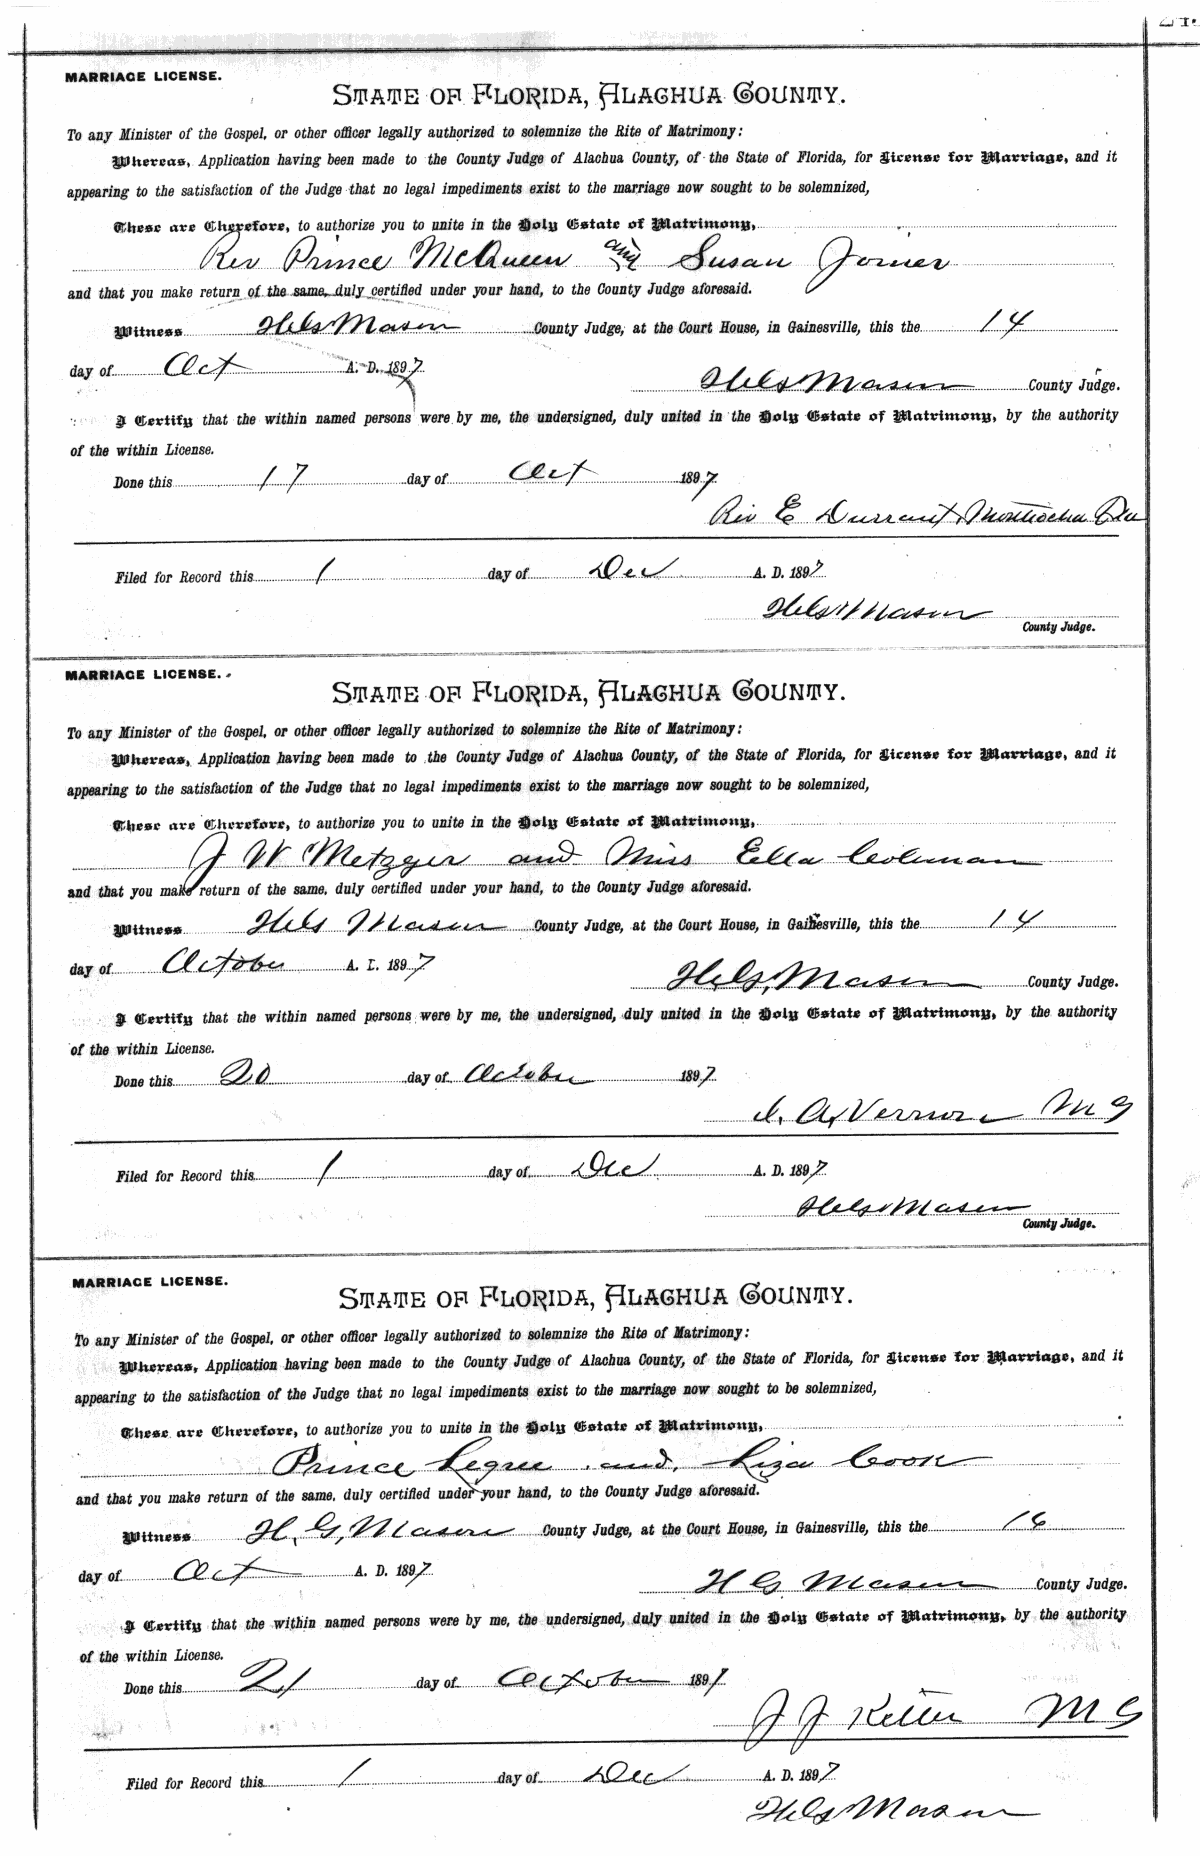 MARRIAGE LICENSE.
STATE OF FLORIDA, ALACHUA COUNTY.
To any Minister of the Gospel, or other officer legally authorized to solemnize the Rite of Matrimony:
Whereas, Application having been made to the County Judge of Alachua County, of the State of Florida, for License for Marriage, and it
appearing to the satisfaction of the Judge that no legal impediments exist to the marriage now sought to be solemnized,
These are Therefore, to authorize you to unite in the Holy Estate of Matrimony,
Rev Prince McQueen and Susan Joiner
and that you make return of the same, duly certified under your hand, to the County Judge aforesaid.
Witness H G Mason County Judge, at the Court House, in Gainesville, this the 14
day of Oct A. D. 1897
H G Mason County Judge.
I Certify that the within named persons were by me, the undersigned, duly united in the Holy Estate of Matrimony, by the authority
of the within License.
Done this 17 day of Oct 1897
Rev E Durrant,
Filed for Record this 1 day of Dec A. D. 1897
H G Mason
County Judge.
MARRIAGE LICENSE.
STATE OF FLORIDA, ALACHUA COUNTY.
To any Minister of the Gospel, or other officer legally authorized to solemnize the Rite of Matrimony:
Whereas, Application having been made to the County Judge of Alachua County, of the State of Florida, for License for Marriage, and it
appearing to the satisfaction of the Judge that no legal impediments exist to the marriage now sought to be solemnized,
These are Therefore, to authorize you to unite in the Holy Estate of Matrimony,
J W Metzger and Miss Ella Coleman
and that you make return of the same, duly certified under your hand, to the County Judge aforesaid.
Witness H G Mason County Judge, at the Court House, in Gainesville, this the 14
day of October A. D. 1897
H. G. Mason County Judge.
I Certify that the within named persons were by me, the undersigned, duly united in the Holy Estate of Matrimony, by the authority
of the within License.
Done this 20 day of October 1897
I. A. Vernon M G
Filed for Record this 1 day of Dec A. D. 1897
H G Mason
County Judge.
MARRIAGE LICENSE.
STATE OF FLORIDA, ALACHUA COUNTY.
To any Minister of the Gospel, or other officer legally authorized to solemnize the Rite of Matrimony:
Whereas, Application having been made to the County Judge of Alachua County, of the State of Florida, for License for Marriage, and it
appearing to the satisfaction of the Judge that no legal impediments exist to the marriage now sought to be solemnized,
These are Therefore, to authorize you to unite in the Holy Estate of Matrimony,
Prince Legree and Liza Cook
and that you make return of the same, duly certified under your hand, to the County Judge aforesaid.
Witness H. G. Mason County Judge, at the Court House, in Gainesville, this the 16
day of Oct A. D. 1897
H G Mason County Judge.
I Certify that the within named persons were by me, the undersigned, duly united in the Holy Estate of Matrimony, by the authority
of the within License.
Done this 21 day of October 1897
J J Keller M G
Filed for Record this 1 day of Dec A. D. 1897
H G Mason